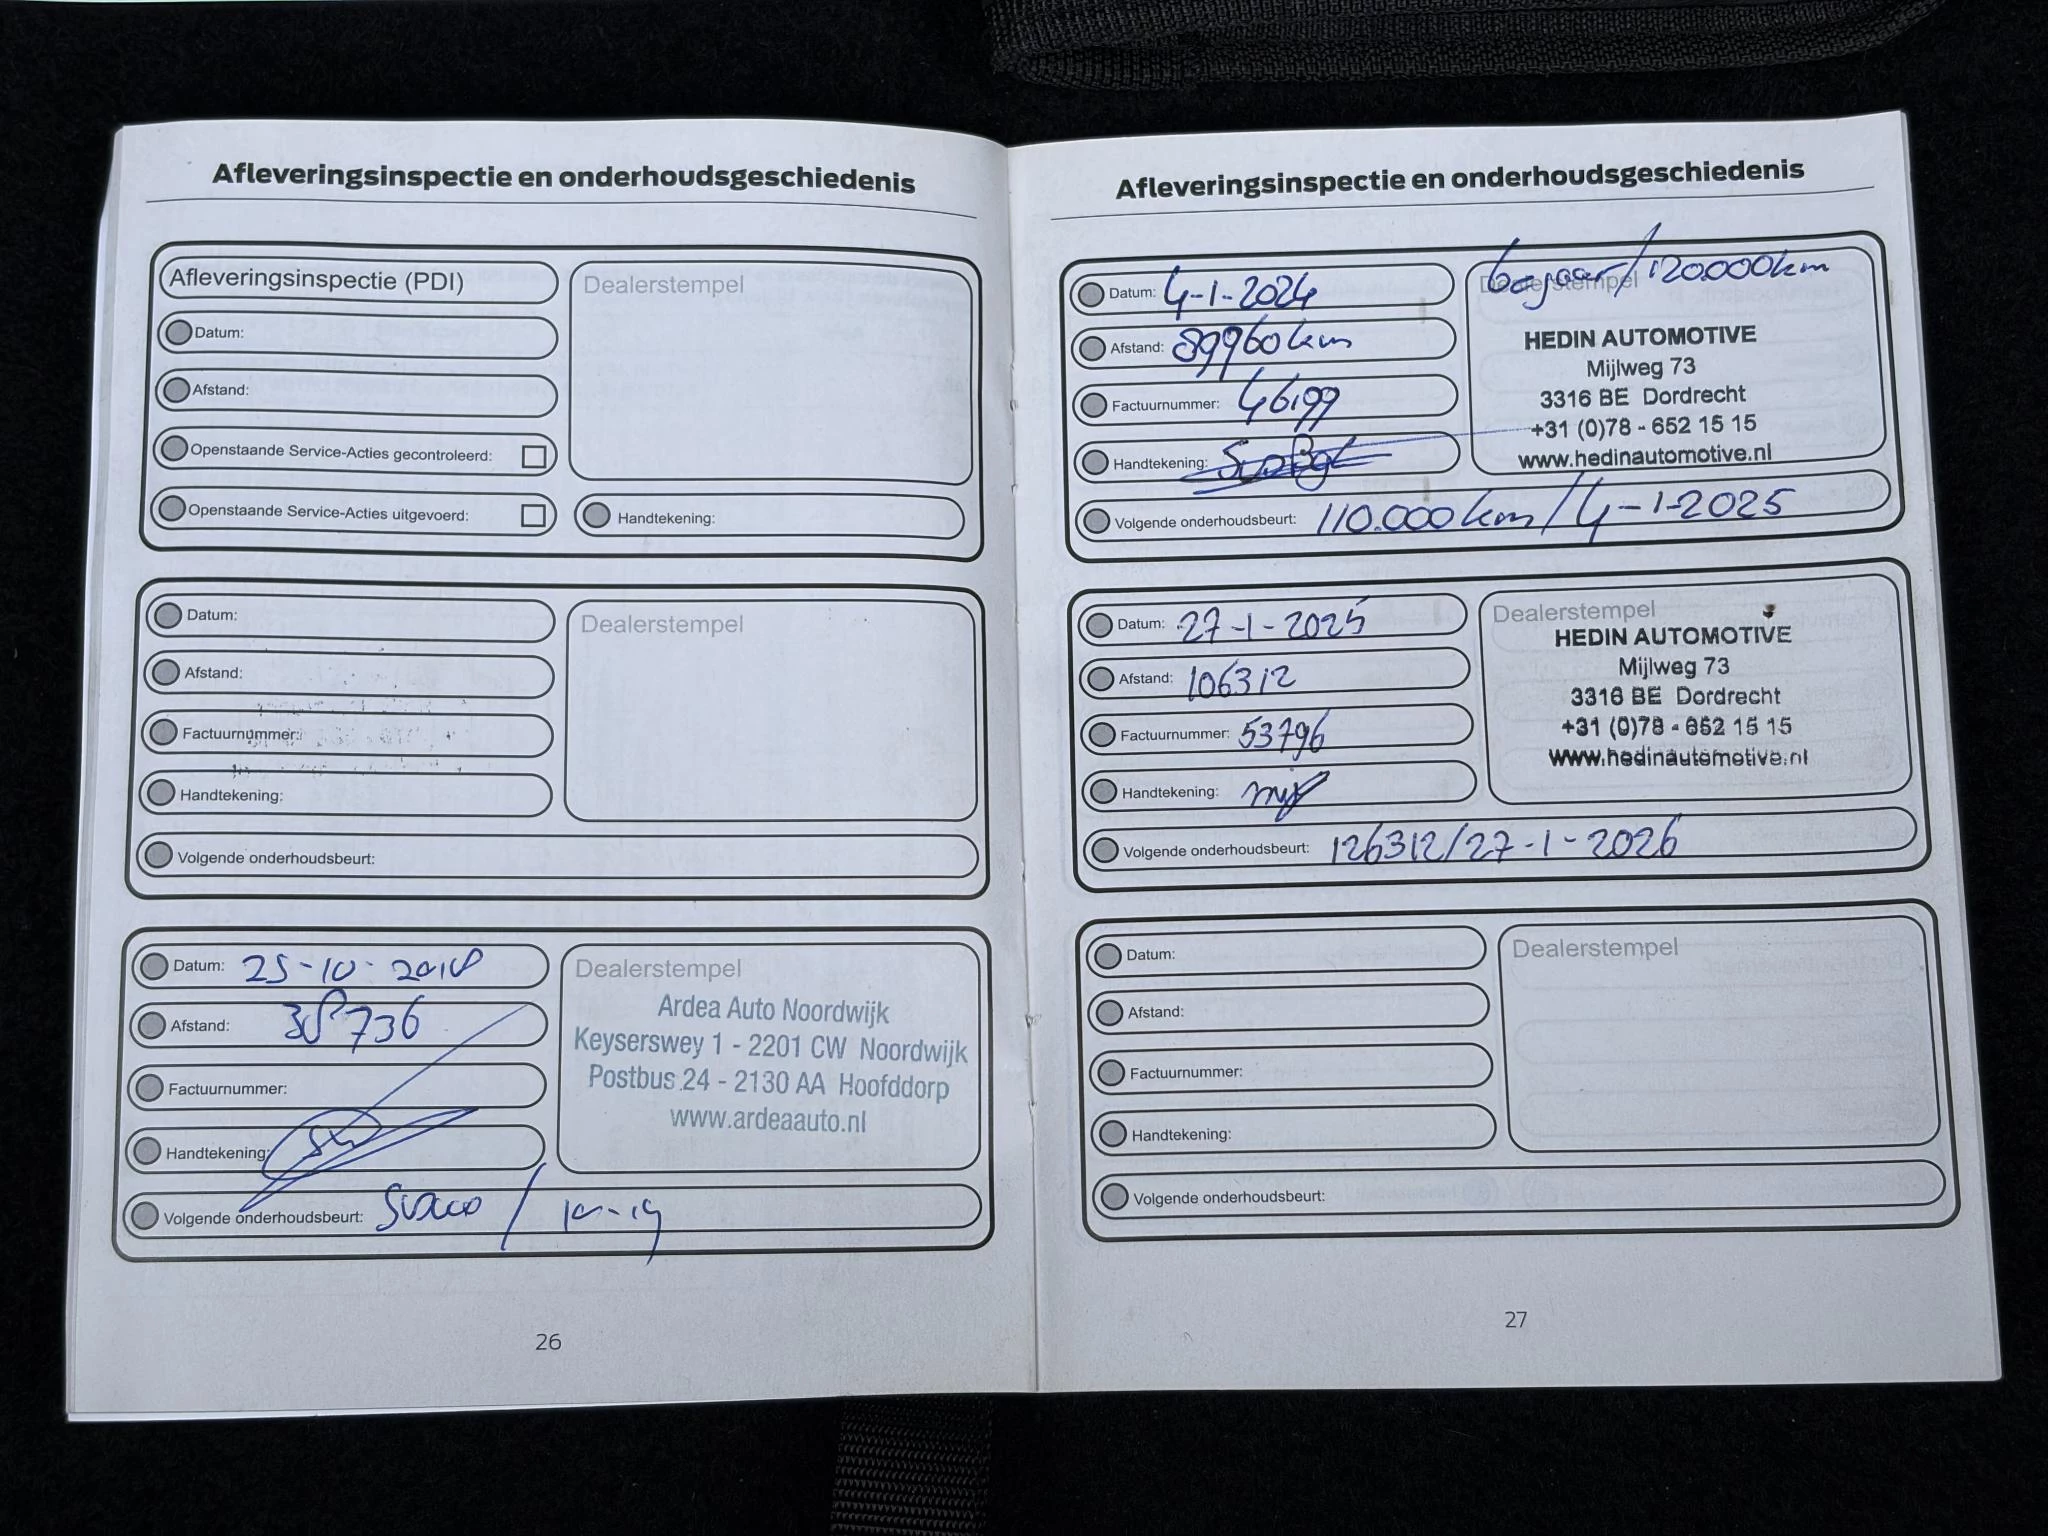 Afleveringsinspectie en onderhoudsgeschiedenis
Afleveringsinspectie (PDI)
Datum:
Afstand:
Openstaande Service-Acties gecontroleerd:
Openstaande Service-Acties uitgevoerd:
Dealerstempel
Handtekening:
Datum:
Afstand:
Factuurnummer:
Handtekening:
Dealerstempel
Volgende onderhoudsbeurt:
Datum: 25-10-2018
Afstand: 38736
Factuurnummer:
Handtekening:
Dealerstempel
Ardea Auto Noordwijk
Keyserswey 1 - 2201 CW Noordwijk
Postbus 24 - 2130 AA Hoofddorp
www.ardeaauto.nl
Volgende onderhoudsbeurt: / 10-19
26
Afleveringsinspectie en onderhoudsgeschiedenis
Datum: 4-1-2024
Afstand: 89960 km
Factuurnummer: 46199
Handtekening:
Dealerstempel
/120.000 km
HEDIN AUTOMOTIVE
Mijlweg 73
3316 BE Dordrecht
+31 (0)78 - 652 15 15
www.hedinautomotive.nl
Volgende onderhoudsbeurt: 110.000 km/4-1-2025
Datum: 27-1-2025
Afstand: 106312
Factuurnummer: 53796
Handtekening:
Dealerstempel
HEDIN AUTOMOTIVE
Mijlweg 73
3316 BE Dordrecht
+31 (0)78 - 652 15 15
www.hedinautomotive.nl
Volgende onderhoudsbeurt: 126312/27-1-2026
Datum:
Afstand:
Factuurnummer:
Handtekening:
Dealerstempel
Volgende onderhoudsbeurt:
27